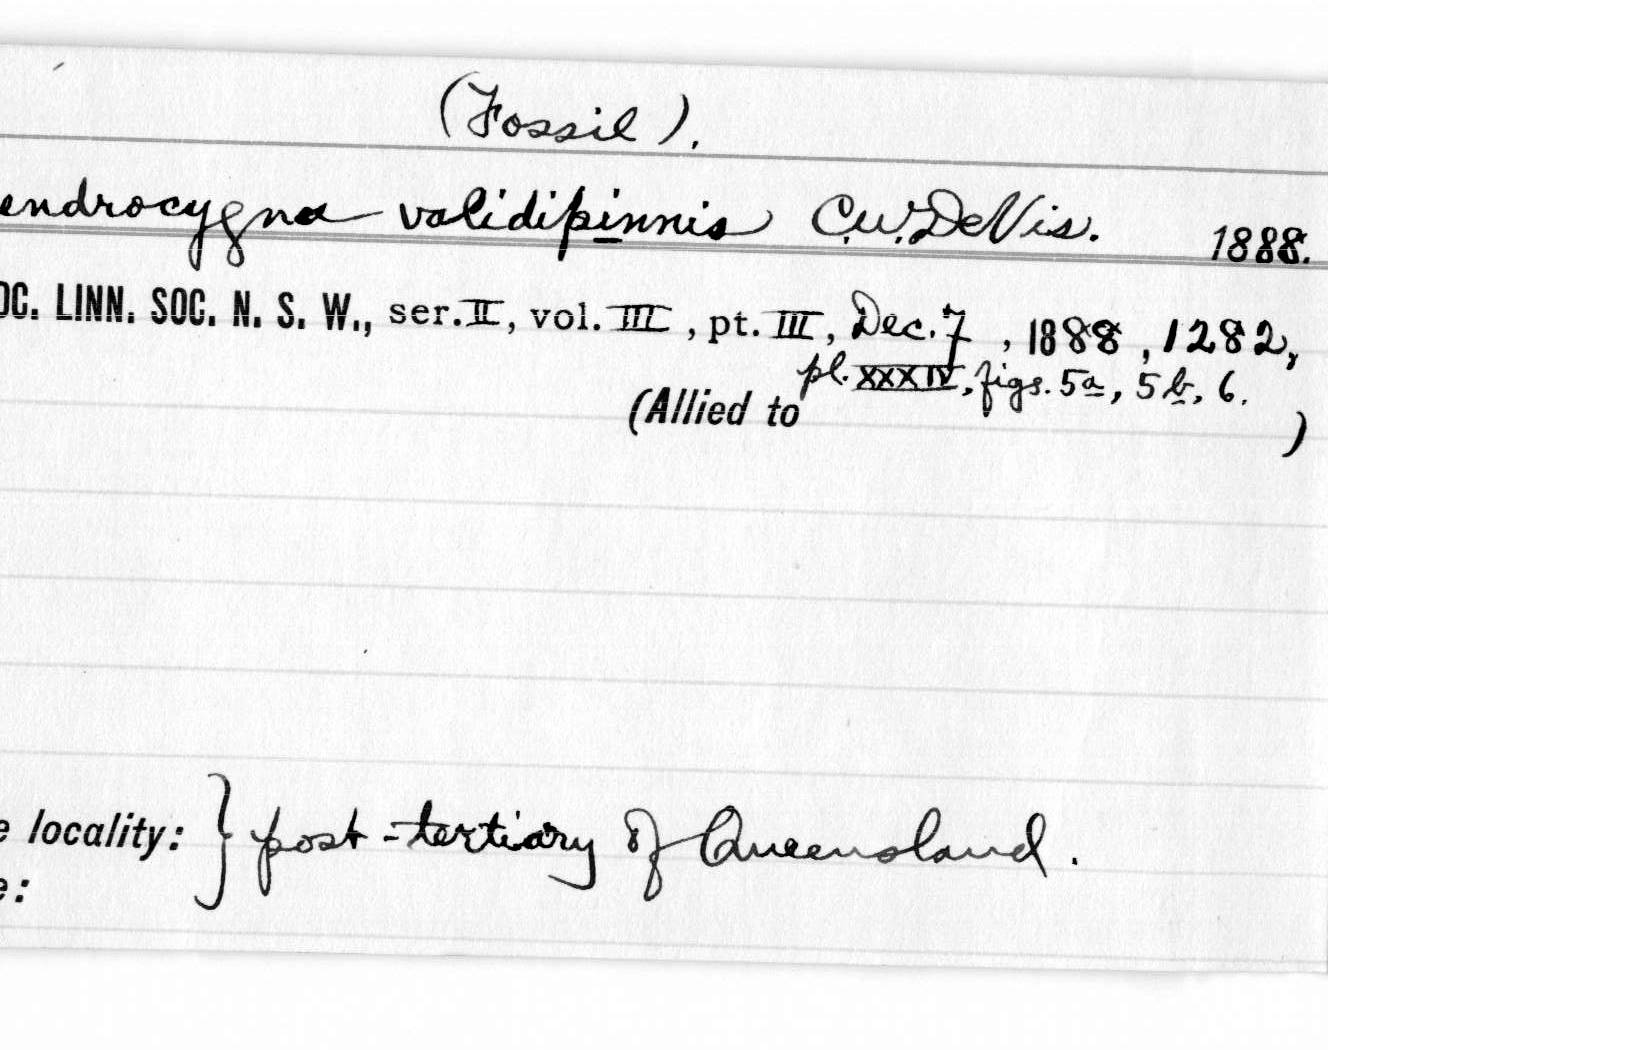 (Fossil).
endrocygna validipinnis C.W. DeVis. 1888.
OC. LINN. SOC. N. S. W., ser. II, vol. III, pt. III, Dec. 7, 1888, 1282,
pl. XXXIV, figs. 5a, 5b, 6.
(Allied to )
e locality: } post-tertiary of Queensland.
e: